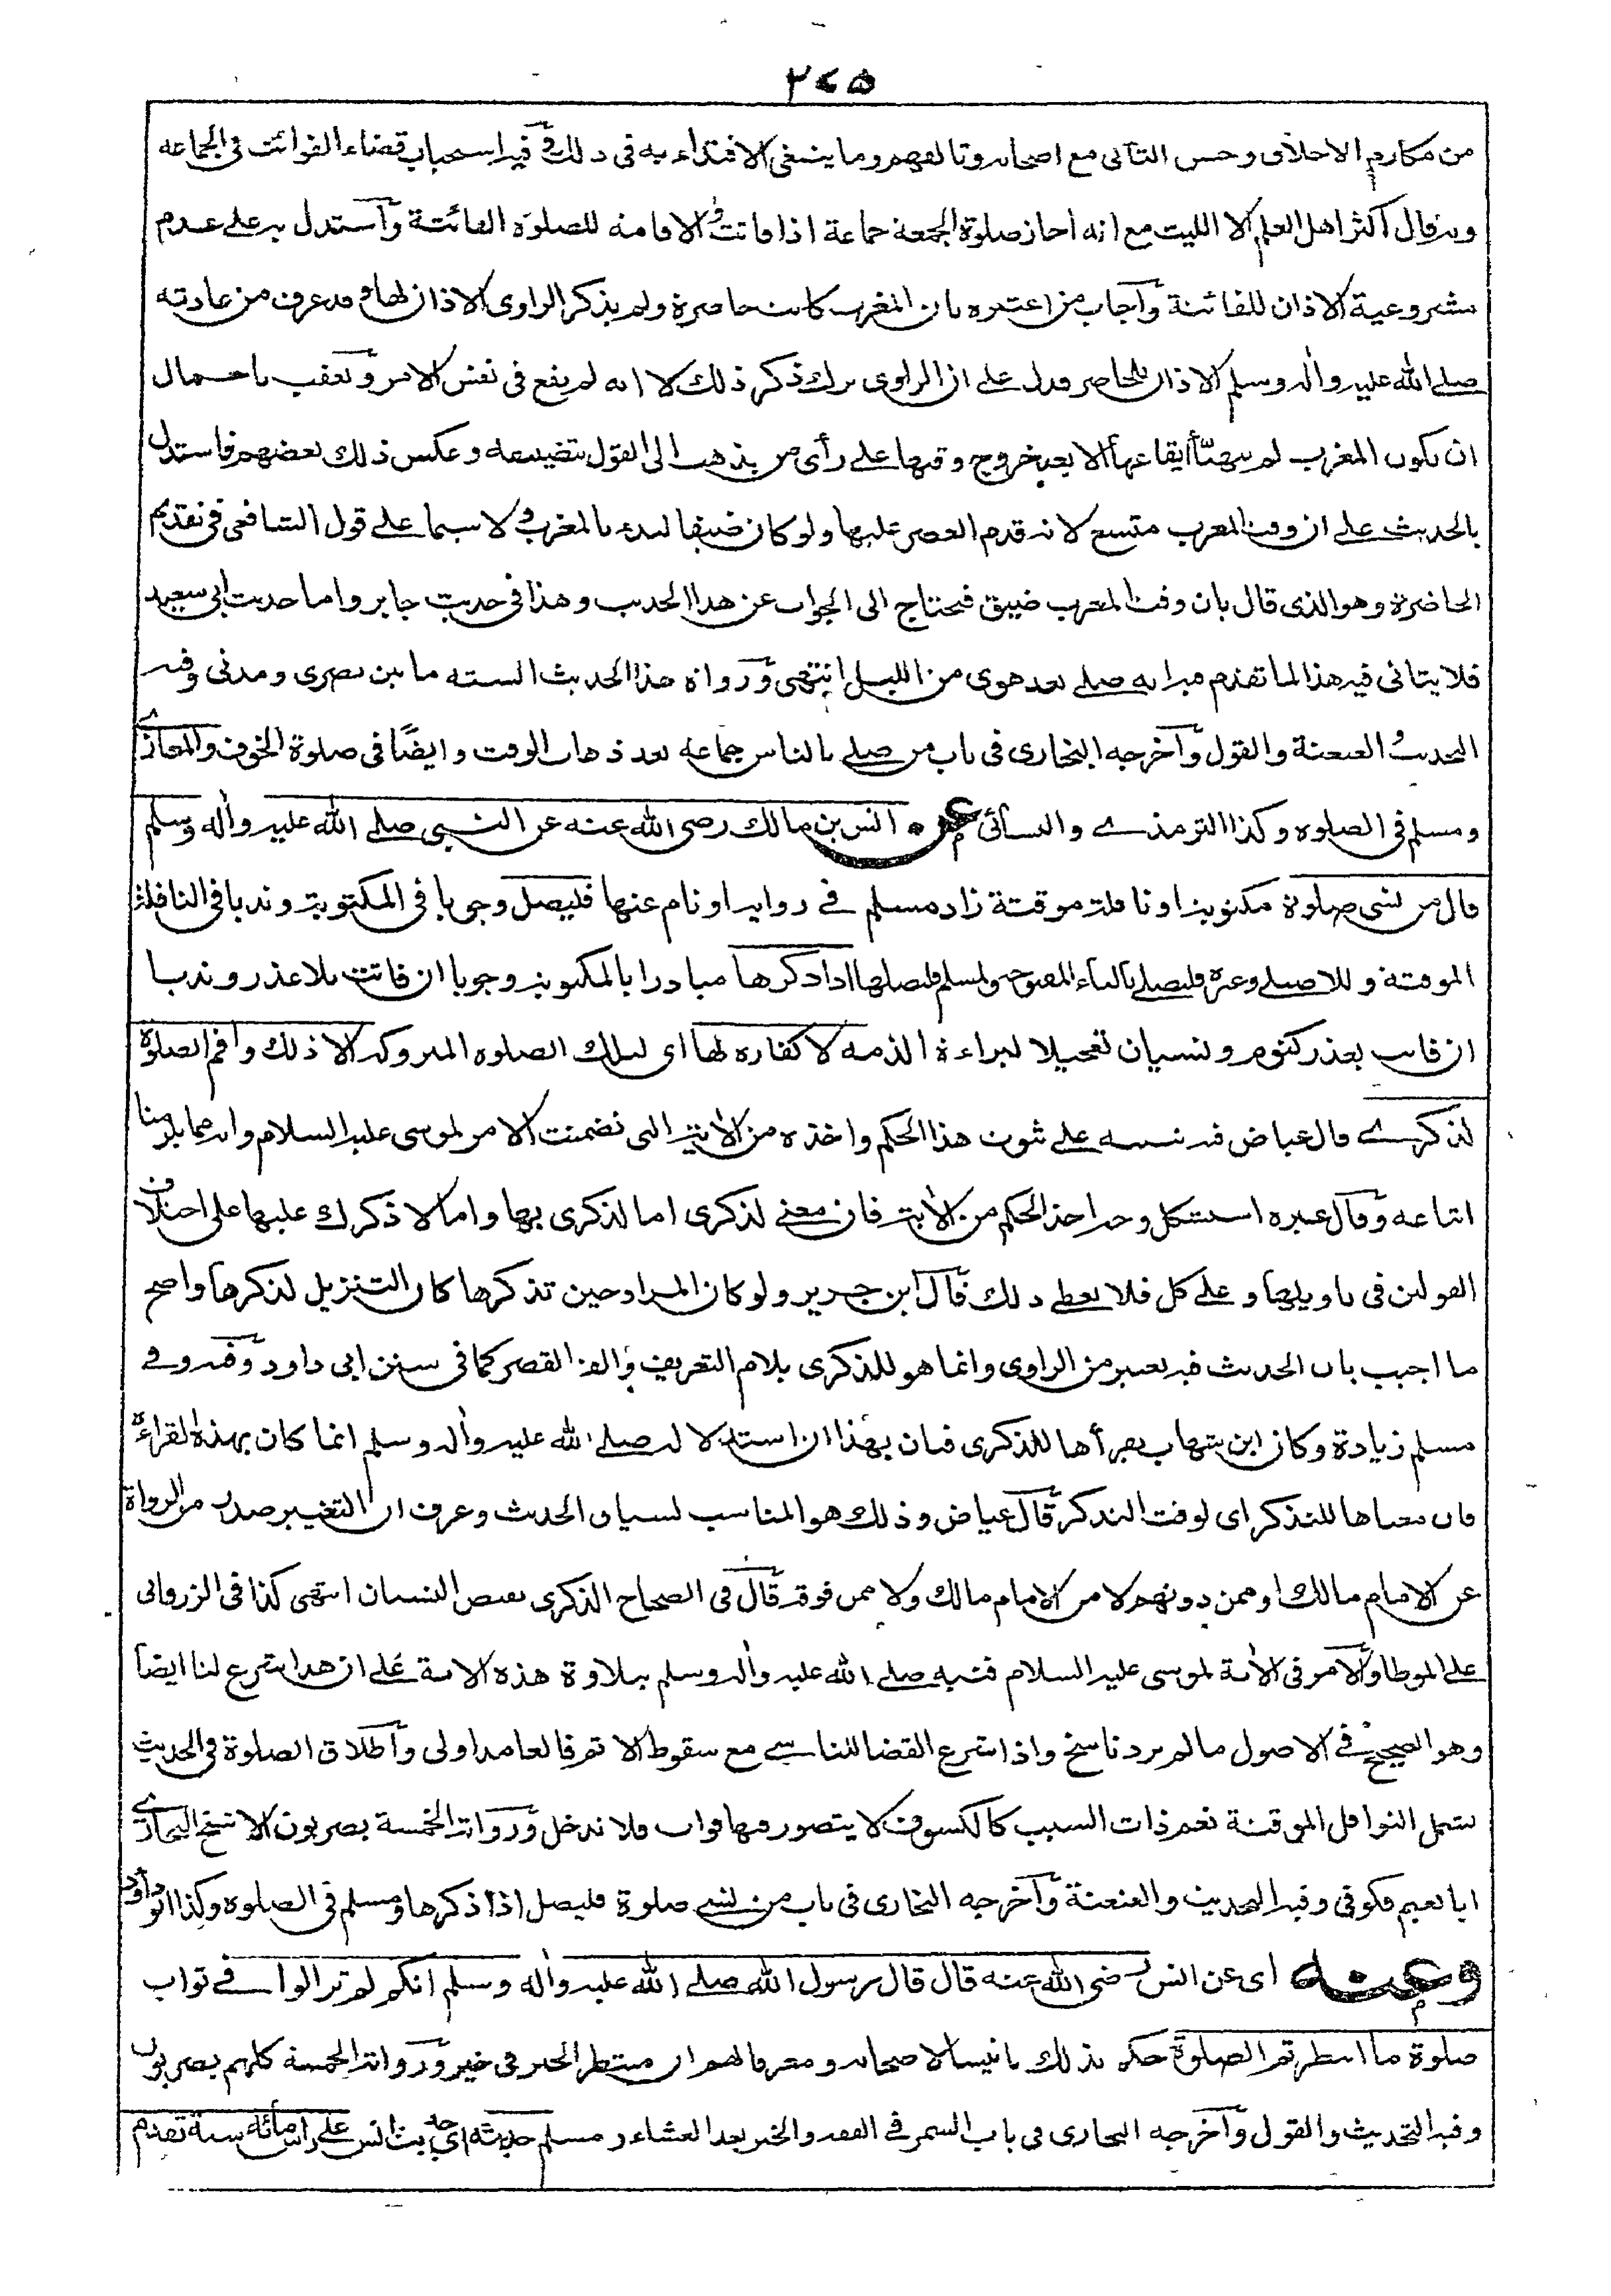 ٣٧٥
من مكارم الاخلاق وحسن التأنى مع اصحابه وتالفهم وما ينبغى الاقتداء به فى ذلك وفيه استحباب قضاء الفوائت فى الجماعة
وبه قال أكثر اهل العلم الا الليث مع انه اجاز صلوة الجمعة جماعة اذا فاتت والاقامة للصلوة الفائتة واستدل به على عدم
مشروعية الاذان للفائتة وأجاب من اعتبره بان المغرب كانت حاضرة ولم يذكر الراوى الاذان لها وقد عرف من عادته
صلى الله عليه واله وسلم الاذان للحاضرة فدل على ان الراوى ترك ذكر ذلك لا انه لم يقع فى نفس الامر وتعقب باحتمال
ان تكون المغرب لم يتهيأ ايقاعها الا بعد خروج وقتها على رأى من يذهب الى القول بتضييقه وعكس ذلك بعضهم فاستدل
بالحديث على ان وقت المغرب متسع لانه قدم العصر عليها ولو كان ضيقا لبدء بالمغرب ولا سيما على قول الشافعى فى تقديم
الحاضرة وهو الذى قال بان وقت المغرب ضيق فيحتاج الى الجواب عن هذا الحديث وهذا فى حديث جابر واما حديث ابى سعيد
فلا يتاتى فيه هذا لما تقدم فيه انه صلى بعد هوى من الليل انتهى ورواة هذا الحديث الستة ما بين بصرى ومدنى وفيه
التحديث والعنعنة والقول وأخرجه البخارى فى باب من صلى بالناس جماعة بعد ذهاب الوقت وايضًا فى صلوة الخوف والمغازى
ومسلم فى الصلوة وكذا الترمذى والنسائى عن انس بن مالك رضى الله عنه عن النبى صلى الله عليه واله وسلم
قال من نسى صلوة مكتوبة او نافلة موقتة زاد مسلم فى رواية او نام عنها فليصل وجوبا فى المكتوبة وندبا فى النافلة
الموقتة وللاصيلى وغيره فليصلى بالياء المفتوحة ولمسلم فليصلها اذا ذكرها مبادرا بالمكتوبة وجوبا ان فاتت بلا عذر وندبا
ان فاتت بعذر كنوم ونسيان تعجيلا لبراءة الذمة لا كفارة لها اى لتلك الصلوة المتروكة الا ذلك واقم الصلوة
لذكرى قال عياض فيه تنبيه على ثبوت هذا الحكم واخذه من الأية التى تضمنت الامر لموسى عليه السلام وانه مما يلزمنا
اتباعه وقال غيره استشكل وجه اخذ الحكم من الأية فان معنى لذكرى اما لذكرى بها واما لا ذكرك عليها على اختلاف
القولين فى تاويلها وعلى كل فلا يعطى ذلك قال ابن جرير ولو كان المراد حين تذكرها كان التنزيل لذكرها واصح
ما اجيب بان الحديث فيه تغيير من الراوى وانما هو للذكرى بلام التعريف والف القصر كما فى سنن ابى داود وفيه وفى
مسلم زيادة وكان ابن شهاب يقرأها للذكرى فبان بهذا ان استدلاله صلى الله عليه واله وسلم انما كان بهذه القراءة
فان معناها للتذكر اى لوقت التذكر قال عياض وذلك هو المناسب لسياق الحديث وعرف ان التغيير صدر من الرواة
عن الامام مالك او ممن دونهم لا من الامام مالك ولا ممن فوقه قال فى الصحاح الذكرى نقيض النسيان انتهى كذا فى الزرقانى
على الموطا والامر فى الأية لموسى عليه السلام فنبه صلى الله عليه واله وسلم بتلاوة هذه الاية على ان هذا شرع لنا ايضا
وهو الصحيح فى الاصول ما لم يرد ناسخ واذا شرع القضا للناسى مع سقوط الاثم فالعامد اولى وأطلاق الصلوة فى الحديث
يشمل النوافل الموقتة نعم ذات السبب كالكسوف لا يتصور فيها فوات فلا تدخل ورواته الخمسة بصريون الا شيخ البخارى
ابا نعيم فكوفى وفيه التحديث والعنعنة وأخرجه البخارى فى باب من نسى صلوة فليصل اذا ذكرها ومسلم فى الصلوة وكذا ابو داود
وعنه اى عن انس رضى الله عنه قال قال رسول الله صلى الله عليه واله وسلم انكم لم تزالوا فى ثواب
صلوة ما انتظرتم الصلوة حكم بذلك تانيسا لاصحابه ومعرفا لهم ان منتظر الخير فى خير ورواته الخمسة كلهم بصريون
وفيه التحديث والقول وأخرجه البخارى فى باب السمر فى الفقه والخير بعد العشاء ومسلم حديثه اى حديث انس على رأس مائة سنة تقدم